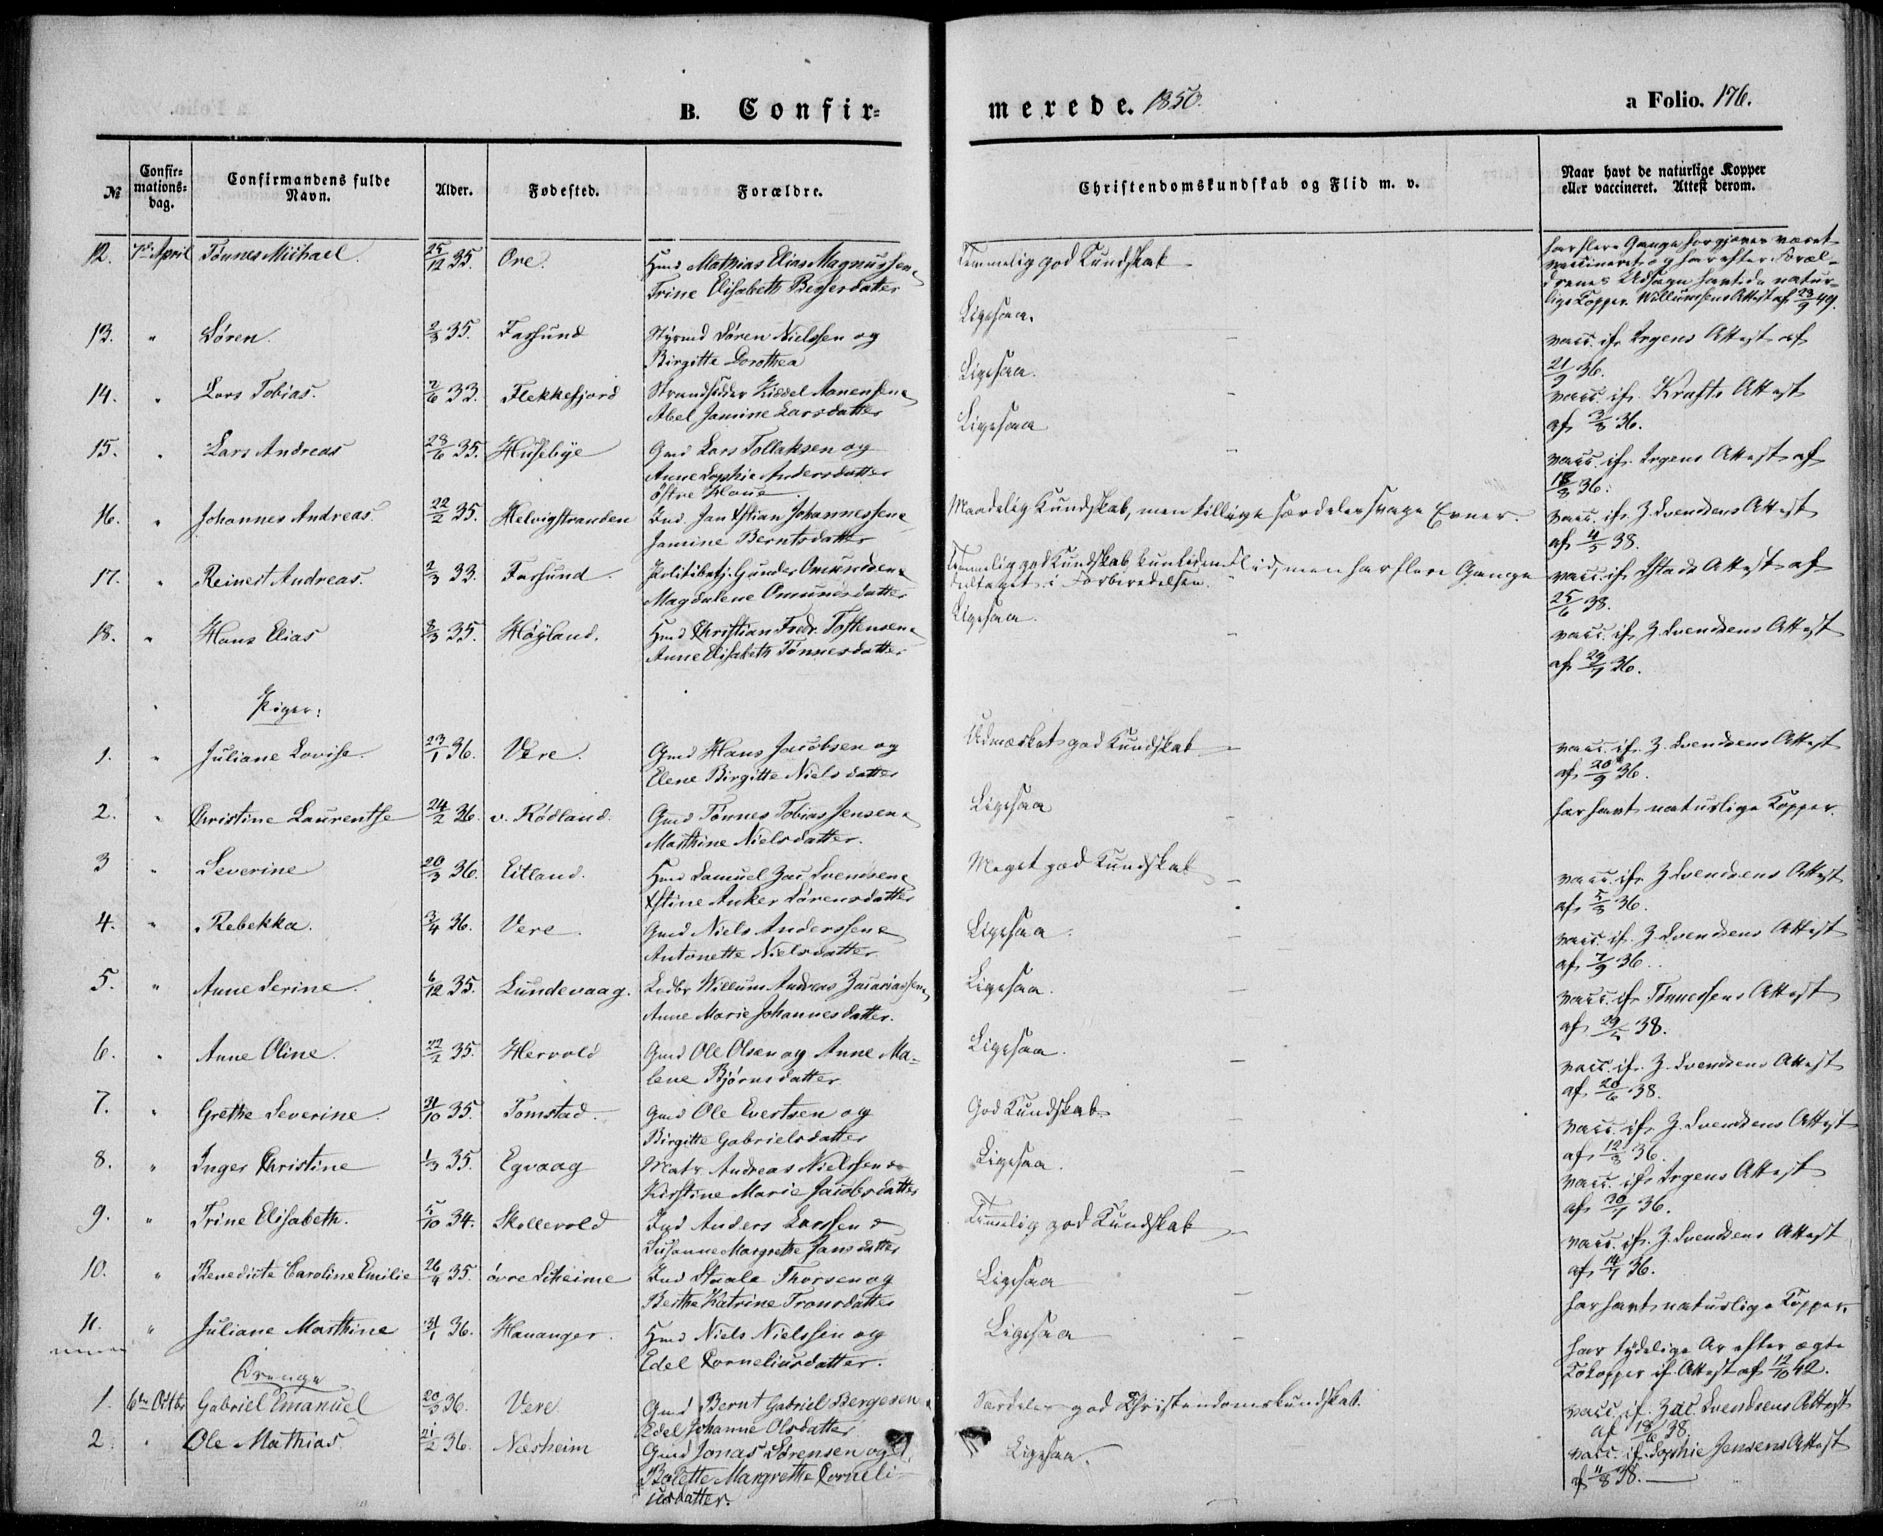 B. Confir=
merede. 1850.
a Folio. 176.
№
Confir=
mations=
dag.
Confirmandens fulde
Navn.
Alder.
Fødested.
Forældre.
Christendomskundskab og Flid m. v.
Naar havt de naturlige Kopper
eller vaccineret. Attest derom.
12. 7de April Tønnes Michael. 25/12 35. Ore. Hmd Mathias Elias Magnussen Temmelig god Kundskab
Trine Elisabeth Bergersdatter
har flere Gange forgjæves været
vaccineret og har efter Foræl-
drenes Udsagn havt de natur-
lige Kopper. Willumsens Attest af 23/9 49.
13. " Søren. 2/3 35. Farsund Styrmd Søren Nielssen og Ligesaa. vacc. if. Irgens Attest af
Birgitte Dorothea 21/9 36.
14. " Lars Tobias. 2/6 33. Flekkefjord Strandsidder Kiddel Aanensen Ligesaa. vacc. if. Krafts Attest
Abel Jamine Larsdatter af 3/8 36.
15. " Lars Andreas 28/6 35. Huseby Gmd Lars Tollaksen og Ligesaa vacc. if. Irgens Attest af
Anne Sophie Andersdatter 18/3 36.
Østre Haue
16. " Johannes Andreas. 22/2 35. Helvigstranden Ind. Jan Xstian Johannessen Maadelig Kundskab, men tillige særdeles svage Evner. vacc. if. Z. Svendsens Attest
Jamine Berntsdatter af 4/5 38.
17. " Reinert Andreas. 2/3 33. Farsund. Politibetj. Gunder Omundsen Temmelig god Kundskab, kun liden Flid, men har flere Gange vacc. if. Attest af
Magdalene Omundsdatter deltaget i Forberedelsen. 25/6 38.
18. " Hans Elias 8/3 35. Høyland. Hmd Christian Fredr. Toftensen Ligesaa. vacc. if. Z. Svendsens Attest
Anne Elisabeth Tønnesdatter af 29/7 36.
" Piger:
1. " Juliane Lovise. 23/1 36. Vere. Gmd Hans Jacobsen og Udmærket god Kundskab vacc. if. Z. Svendsens Attest
Elene Birgitte Nielsdatter af 20/9 36.
2. " Christine Laurentse 24/2 36. v. Rødland. Gmd Tønnes Tobias Jensen Ligesaa har havt naturlige Kopper.
Marthine Nielsdatter.
3 " Severine 20/3 36. Eitland. Hmd Samuel Zac Svendsen Meget god Kundskab vacc. if. Z Svendsens Attest
Xstine Anker Sørensdatter af 5/8 36.
4. " Rebekka. 3/4 36. Vere. Gmd Niels Anderssen Ligesaa. vacc. if. Z. Svendsens Attest
Antonette Nielsdatter af 7/9 36.
5. " Anne Serine. 6/12 35. Lundevaag. Ledbr Willum Andreas Zacariassen Ligesaa. vacc. if. Tønnessens Attest
Anne Marie Johannesdatter. af 38.
6. " Anne Oline. 22/2 35. Hervold Gmd Ole Olsen og Anne Ma- Ligesaa. vacc. if. Z. Svendsens Attest
lene Bjørnsdatter. af 20/6 38.
7. " Grethe Severine. 31/10 35. Tomstad. Gmd Ole Evertsen og God Kundskab. vacc. if. Z. Svendsens Attest
Birgitte Gabrielsdatter af 12/3 36.
8. " Inger Christine 1/3 35. Egvaag Matr Andreas Nielssen & Ligesaa. vacc. if. Irgens Attest
Kirstine Marie Jacobsdatter af 30/7 36.
9. " Trine Elisabeth. 5/10 34. Skollevold Ind Anders Larssen & Temmelig god Kundskab vacc. if. Z. Svendsens Attest
Susanne Margrethe Jansdatter af 14/7 36.
10. " Benedicte Caroline Emilie 26/4 35. øvre Skeime Ind Staale Thorsen og Ligesaa har havt naturlige Kopper.
Berthe Katrine Tronsdatter
11. " Juliane Marthine 31/1 36. Hananger. Hmd Niels Nielssen og Ligesaa har tydelige Ar efter ægte
Edel Corneliusdatter. Kokopper if. Attest af 12/10 42.
Drenge
1. 6te Octbr Gabriel Emanuel 20/3 36. Vere Gmd Bernt Gabriel Bergesen Særdeles god Christendomskundskab. vacc. if. Zac. Svendsens Attest
Edel Johanne Olsdatter af 18/6 38.
2. " Ole Mathias 21/2 36. Næsheim Gmd Jonas Sørensen og Ligesaa. vacc. if. Sophie Jensens Attest
Bolette Margrethe Corneli- af 11/8 38.
usdatter.